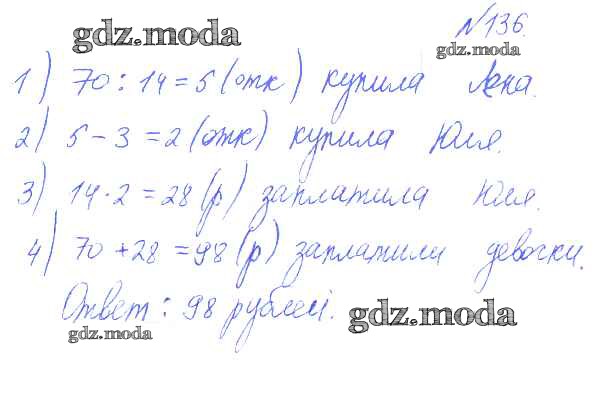 gdz.moda
№136.
gdz.moda
1) 70 : 14 = 5 (отк) купила Лена.
2) 5 - 3 = 2 (отк) купила Юля.
3) 14 · 2 = 28 (р) заплатила Юля.
4) 70 + 28 = 98 (р) заплатили девочки.
Ответ: 98 рублей.
gdz.moda
gdz.moda